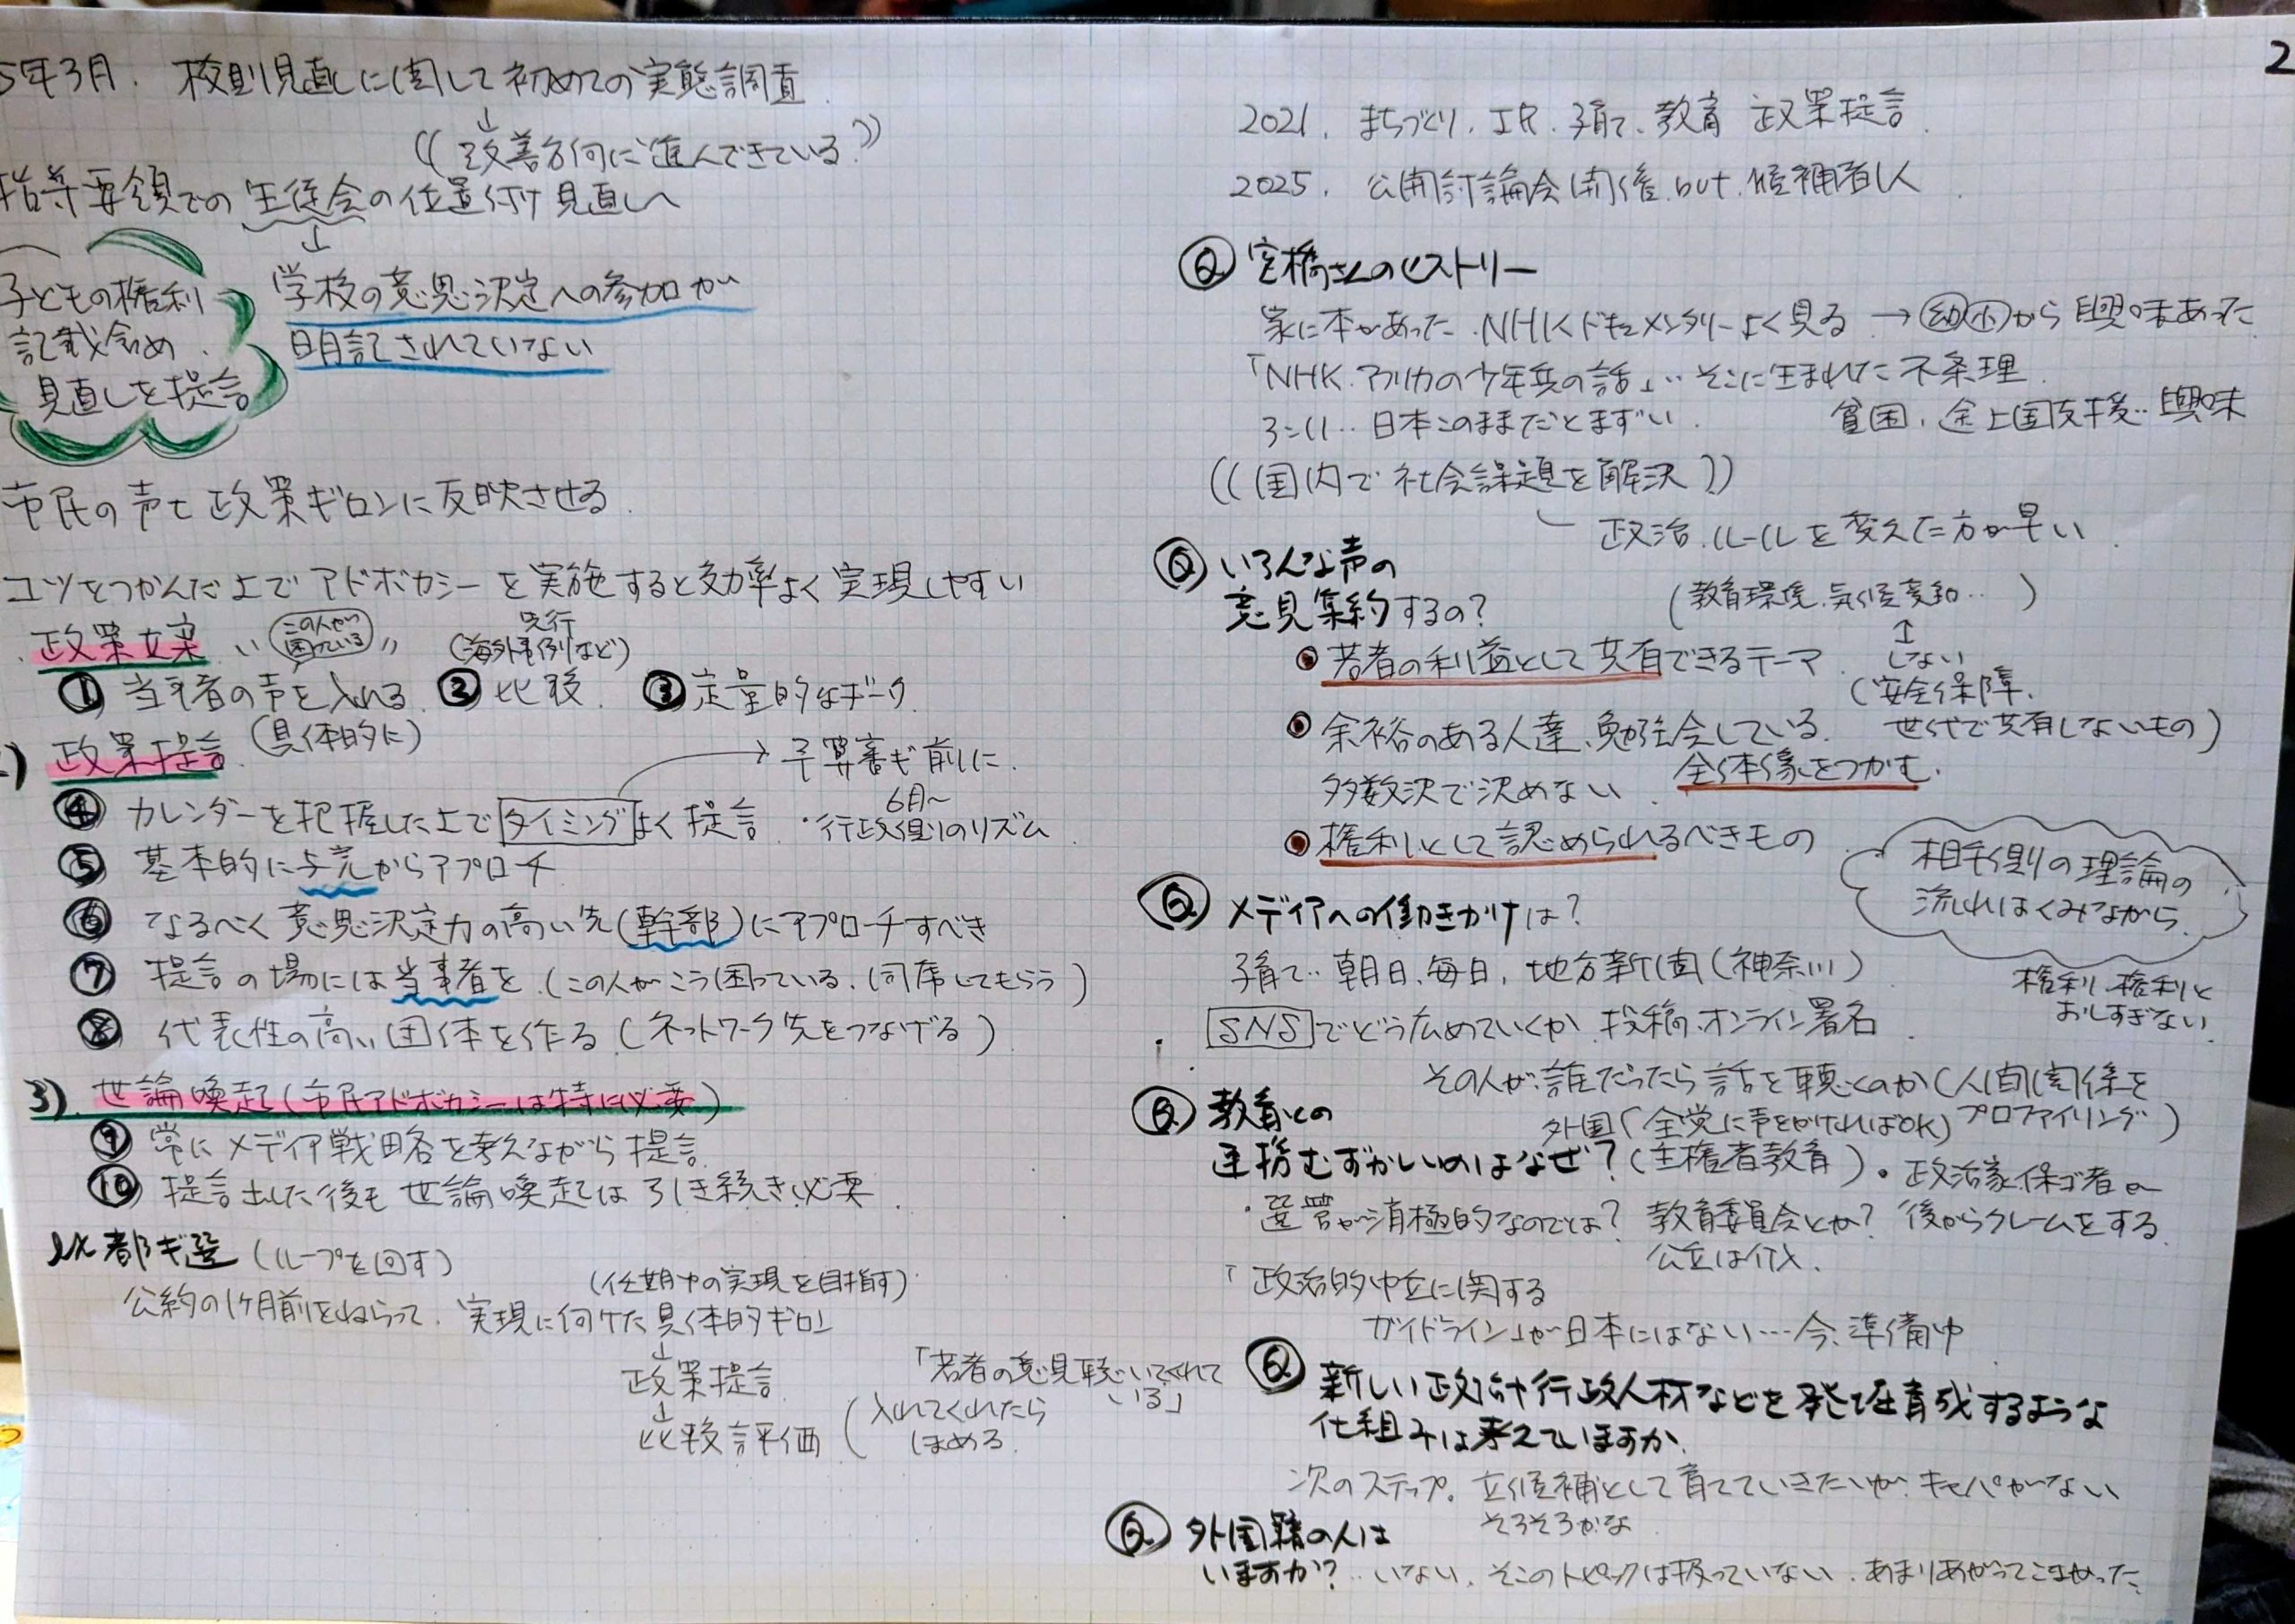 2
5年3月. 校則見直しに関して初めての実態調査
↓
((改善方向に進んできている?))
指導要領での生徒会の位置付け見直しへ
↓
学校の意思決定への参加が
明記されていない
子どもの権利
記載含め.
見直しを提言
市民の声を政策ギロンに反映させる.
コツをつかんだ上でアドボカシーを実施すると効率よく実現しやすい
政策立案 "この人が困っている"
先行
(海外事例など)
① 当事者の声を入れる. ② 比較. ③ 定量的なデータ.
(具体的に)
) 政策提言.
→ 予算審ギ前に.
6月〜
④ カレンダーを把握した上でタイミングよく提言 ・行政側のリズム
⑤ 基本的に与党からアプローチ
⑥ なるべく意思決定力の高い先(幹部)にアプローチすべき
⑦ 提言の場には当事者を.(この人がこう困っている.同席してもらう)
⑧ 代表性の高い団体を作る.(ネットワーク先をつなげる)
3). 世論喚起(市民アドボカシーは特に必要)
⑨ 常にメディア戦略を考えながら提言.
⑩ 提言出した後も世論喚起は引き続き必要.
ex 都ギ選 (ループを回す)
(任期中の実現を目指す)
公約の1ヶ月前をねらって. 実現に向けた具体的ギロン
↓
政策提言
↓
比較評価 (入れてくれたら
ほめる.
「若者の意見聴いてくれて
いる」
2021. まちづくり. 子育て. 教育 政策提言.
2025. 公開討論会開催. but. 候補者1人
Q 宮橋さんのヒストリー
家に本があった. NHKドキュメンタリーよく見る → 幼小から興味あった
「NHK.アフリカの少年兵の話」‥そこに生まれた不条理.
3.11‥日本このままだとまずい. 貧困, 途上国支援‥興味
((国内で社会課題を解決))
政治.ルールを変えた方が早い.
Q いろんな声の
意見集約するの?
(教育環境.気候変動‥ )
↑
しない
・若者の利益として共有できるテーマ.
(安全保障.
世代で共有しないもの)
・余裕のある人達、勉強会している.
多数決で決めない. 全体像をつかむ.
・権利として認められるべきもの
相手側の理論の
流れはくみながら.
権利.権利と
おしすぎない.
Q メディアへの働きかけは?
子育て‥朝日、毎日, 地方新聞(神奈川)
・SNSでどう広めていくか.投稿.オンライン署名.
その人が誰だったら話を聴くのか(人間関係を
プロファイリング)
Q 教育との
連携むずかしいのはなぜ?(主権者教育)
外国(全党に声をかければOK)
・政治家保ゴ者が
後からクレームをする.
・選管が消極的なのでは? 教育委員会とか?
「政治的中立に関する
ガイドライン」が日本にはない…今、準備中
Q 新しい政治行政人材などを発掘育成するような
仕組みは考えていますか.
次のステップ. 立候補として育てていきたいが. キャパがない
そろそろかな.
Q 外国籍の人は
いますか? ‥いない. そこのトピックは扱っていない. あまりあがってこなかった.